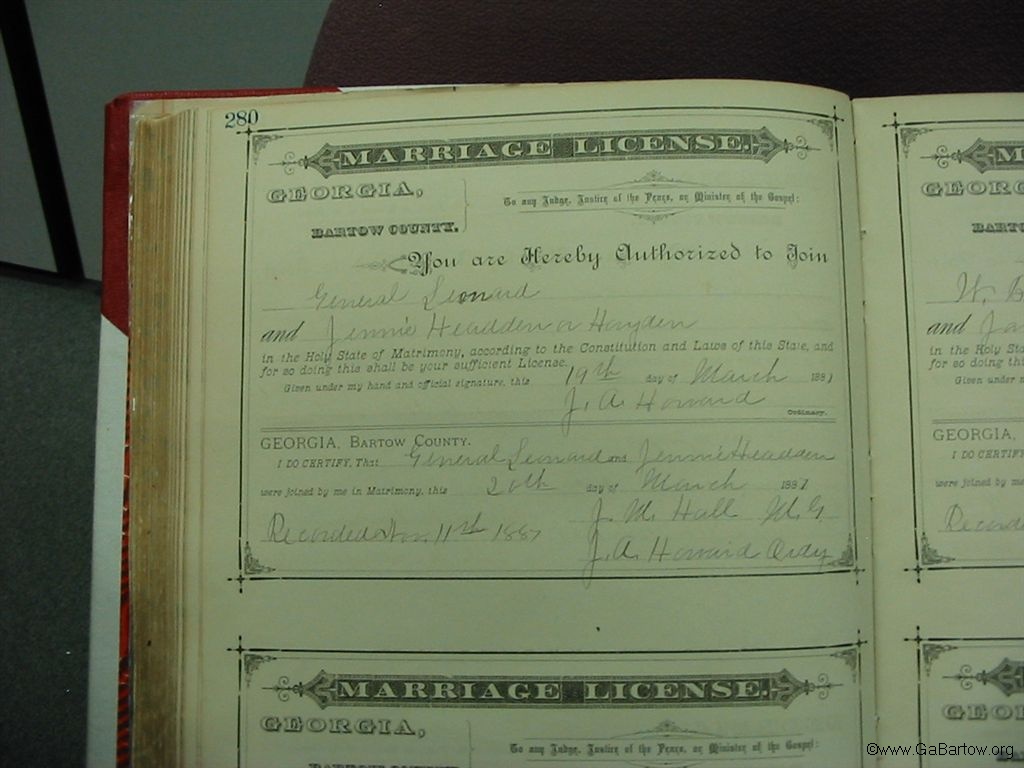 280
MARRIAGE LICENSE.
GEORGIA,
BARTOW COUNTY.
To any Judge, Justice of the Peace, or Minister of the Gospel:
You are Hereby Authorized to Join
General Leonard
and Jennie Headden or Hayden
in the Holy State of Matrimony, according to the Constitution and Laws of this State, and
for so doing this shall be your sufficient License.
Given under my hand and official signature, this 19th day of March 1887
J. A. Howard
Ordinary.
GEORGIA, BARTOW COUNTY.
I DO CERTIFY, That General Leonard and Jennie Headden
were joined by me in Matrimony, this 20th day of March 1887
J. M. Hall M.G.
Recorded 11st 1887
J. A. Howard Ordy
MARRIAGE LICENSE.
GEORGIA,
To any Judge, Justice of the Peace, or Minister of the Gospel:
BARTOW COUNTY.
M
GEORG
BARTO
W.
and
in the Holy Sta
for so doing th
Given under m
GEORGIA,
I DO CERTIF
were joined by
Record
GEO
©www.GaBartow.org